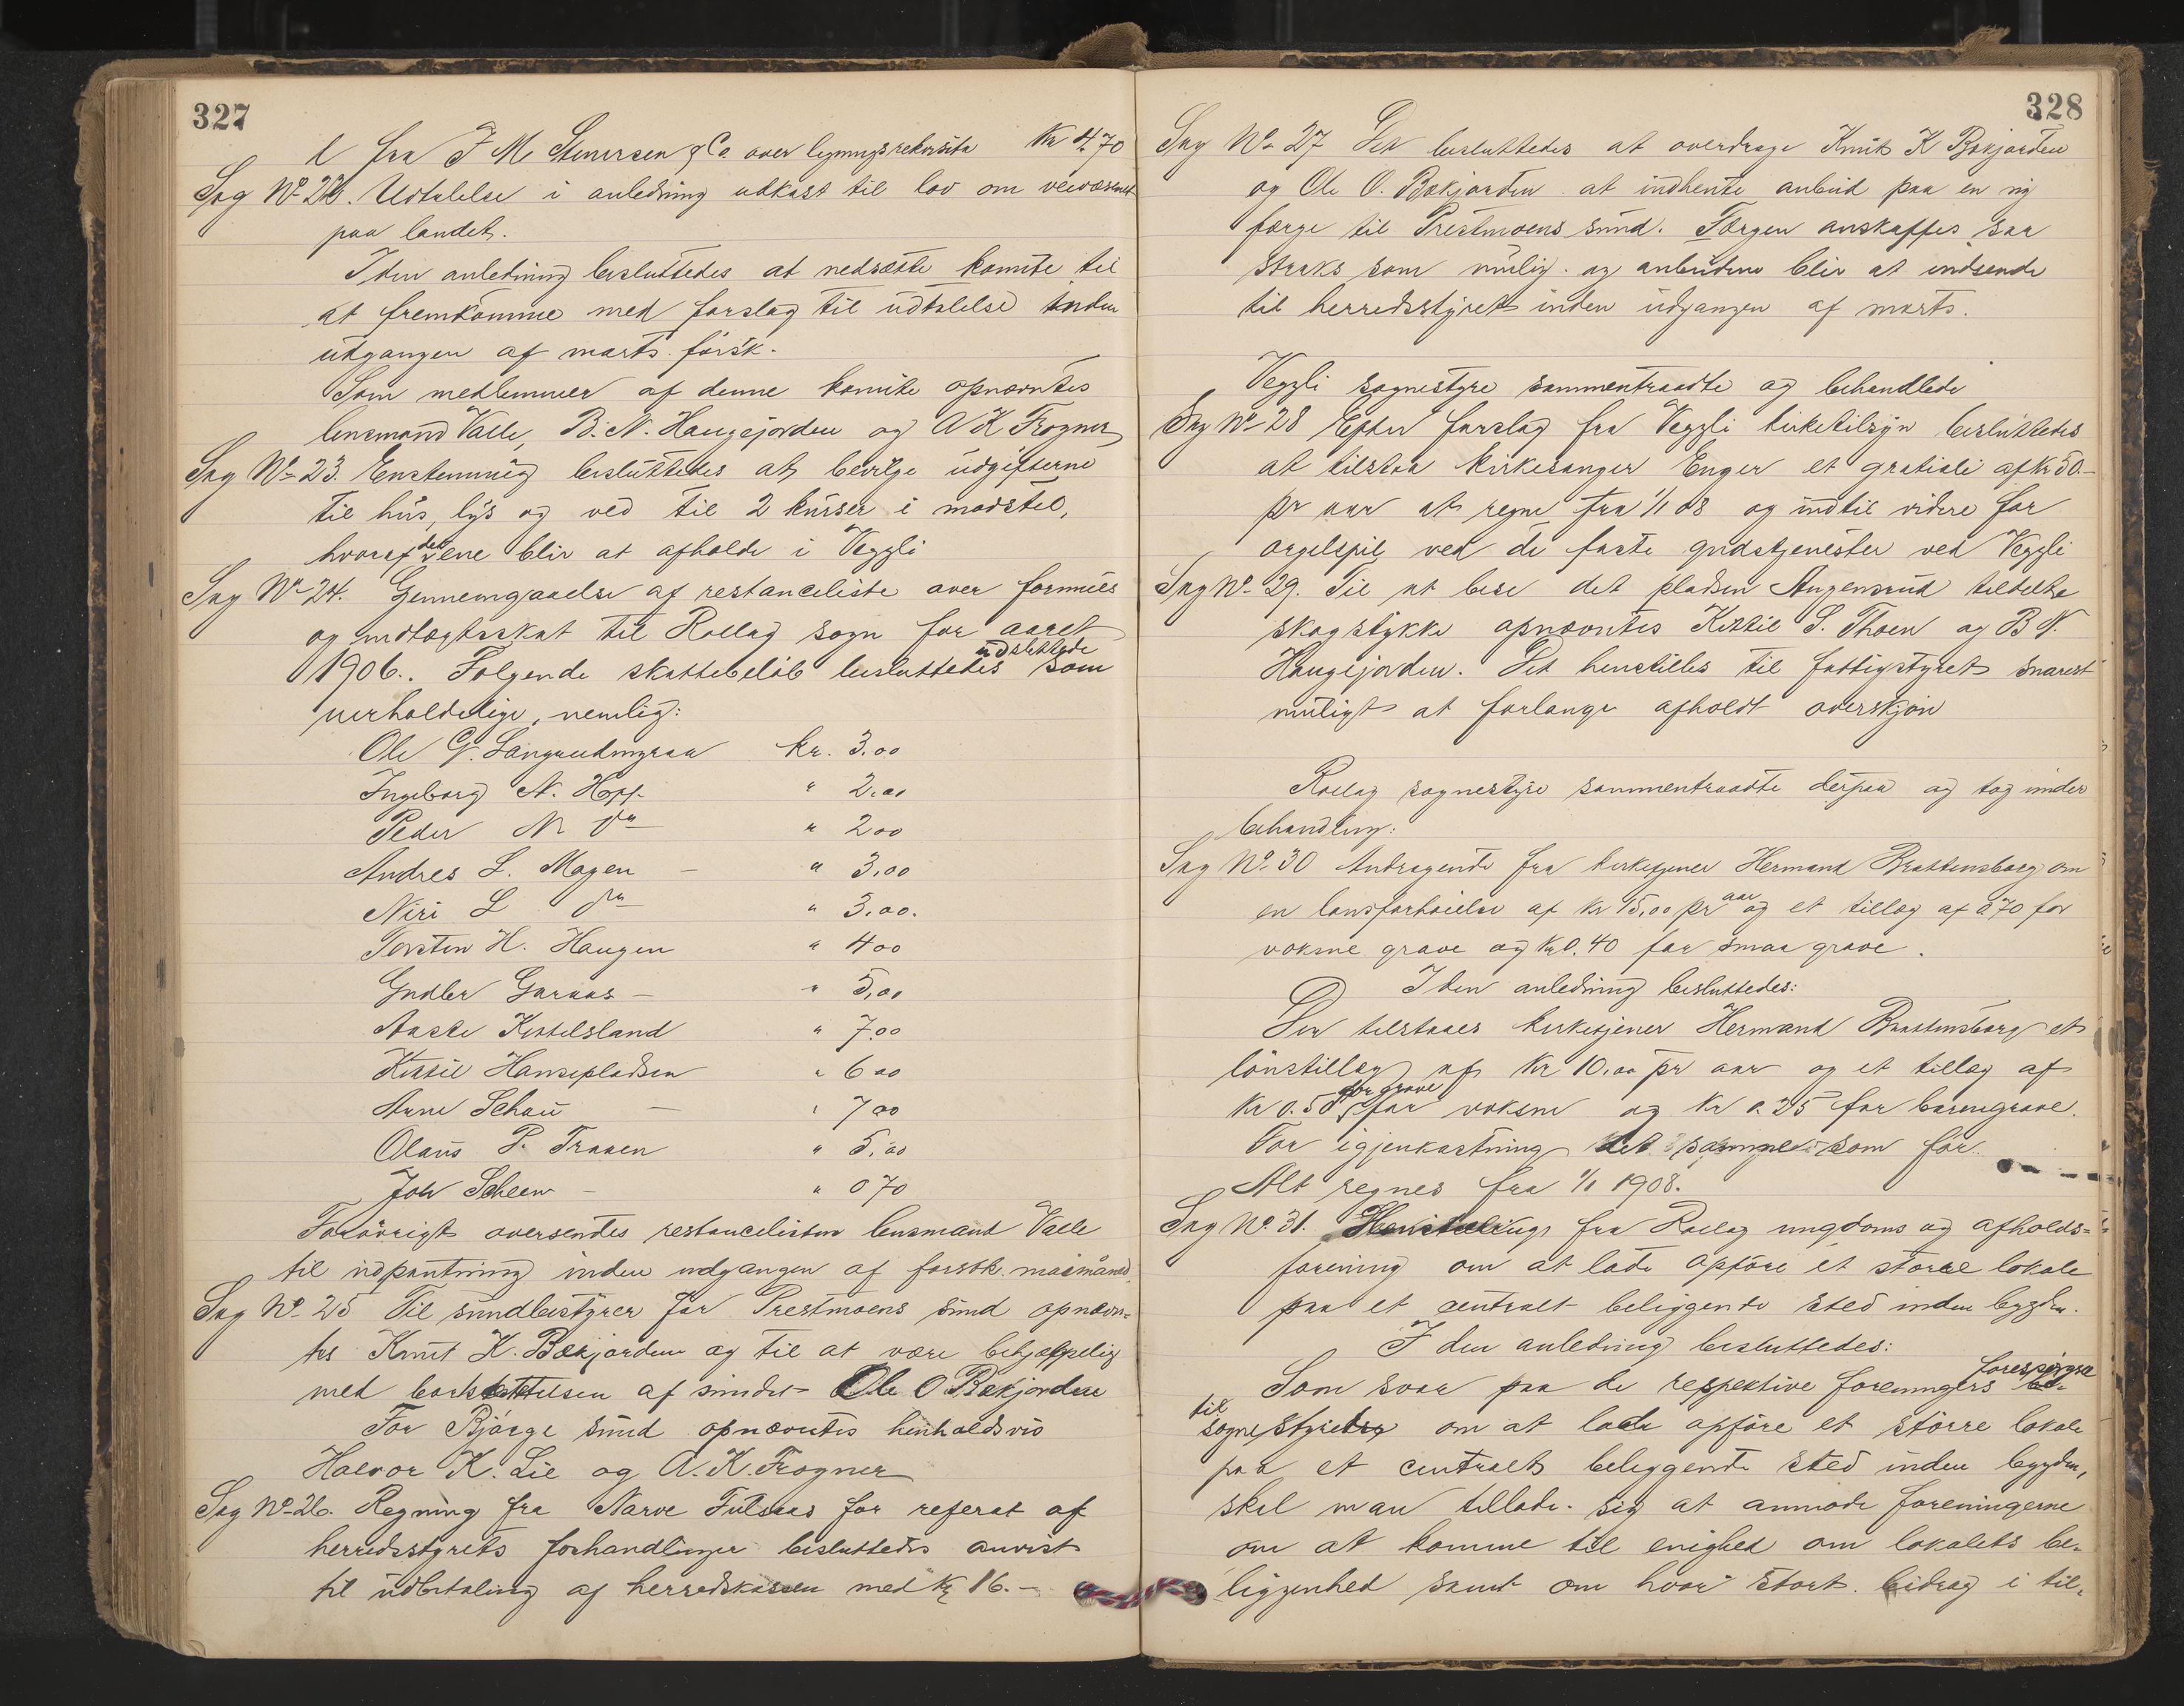 327
l fra J M Stenersen & Co over ligningsrekvisita Kr 4,70
Sag No 22. Udtalelse i anledning udkast til lov om veivæsenet
paa landet.
I den anledning besluttedes at nedsætte komite til
at fremkomme med forslag til udtalelse inden
udgangen af marts førstk.
Som medlemmer af denne komite opnævntes
lensmand Valle, B. N. Haugejorden og A K Frogner
Sag No 23. Enstemmig besluttedes at bevilge udgifterne
til hus, lys og ved til 2 kurser i madstel,
hvoraf det ene blir at afholde i Veggli
Sag No 24. Gennemgaaelse af restanceliste over formues
og indtægtsskat til Rollag sogn for aaret
1906. Følgende skattebeløb besluttedes udslettede som
uerholdelige, nemlig:
Ole G. Langrudmyraa kr. 3.00
Ingeborg N. Hopf. " 2.00
Peder N do " 2 00
Andres L. Mogen – " 3,00
Niri L do " 3,00.
Torsten H. Haugen " 4 00
Gudler Garaas – " 5,00
Aaste Kittilsland " 7.00
Kittil Hansepladsen " 6 00
Arne Schau – " 7 00
Olaus P. Traaen " 5,00
Joh Scheen – " 0 70
Forøvrigt oversendes restancelisten lensmand Valle
til udpantning inden udgangen af førstk. maimåned
Sag No 25 Til sundbestyrer for Prestmoens sund opnævn-
tes Knut K. Bækjorden og til at være behjælpelig
med bortsættelsen af sundet Ole O Bækjorden
For Bjørge sund opnævntes henholdsvis
Halvor K. Lie og A. K. Frogner
Sag No 26. Regning fra Narve Fulsaas for referat af
herredsstyrets forhandlinger besluttedes anvist
til udbetaling af herredskassen med Kr 16.–
328
Sag No 27 Det besluttedes at overdrage Knut K Bækjorden
og Ole O. Bækjorden at indhente anbud paa en ny
færge til Prestmoens sund. Færgen anskaffes saa
straks som mulig og anbudene blir at indsende
til herredsstyret inden udgangen af marts.
Veggli sognestyre sammentraadte og behandlede
Sag No 28 Efter forslag fra Veggli kirketilsyn besluttedes
at tilstaa kirkesanger Enger et gratiale af kr 50.–
pr aar at regne fra 1/1 08 og indtil videre for
orgelspil ved de faste gudstjenester ved Veggli
Sag No 29. Til at bese det pladsen Aagensrud tildelte
skogstykke opnævntes Kittil S. Thoen og B N.
Haugejorden. Det henstilles til fattigstyret snarest
muligt at forlange afholdt overskjøn
Rollag sognestyre sammentraadte derpaa og tog under
behandling:
Sag No 30 Andragende fra kirketjener Hermand Brattensborg om
en lønsforhøielse af kr 15,00 pr aar og et tillæg af 0 70 for
voksne grave og Kr 0.40 for smaa grave.
I den anledning besluttedes:
Der tilstaaes kirketjener Hermand Brattensborg et
lønstillæg af Kr 10,00 pr aar og et tillæg af
Kr 0.50 for grave for voksne og Kr 0.25 for barnegrave.
For igjenkastning det samme som før.
Alt regnes fra 1/1 1908.
Sag No 31. Henstilling fra Rollag ungdoms og afholds-
forening om at lade opføre et større lokale
paa et centralt beliggende sted inden bygden.
I den anledning besluttedes:
Som svar paa de respektive foreningers forespørgsel
til sognestyret om at lade opføre et større lokale
paa et centralt beliggende sted inden bygden,
skal man tillade sig at anmode foreningerne
om at komme til enighed om lokalets be-
liggenhed samt om hvor stort bidrag i til-